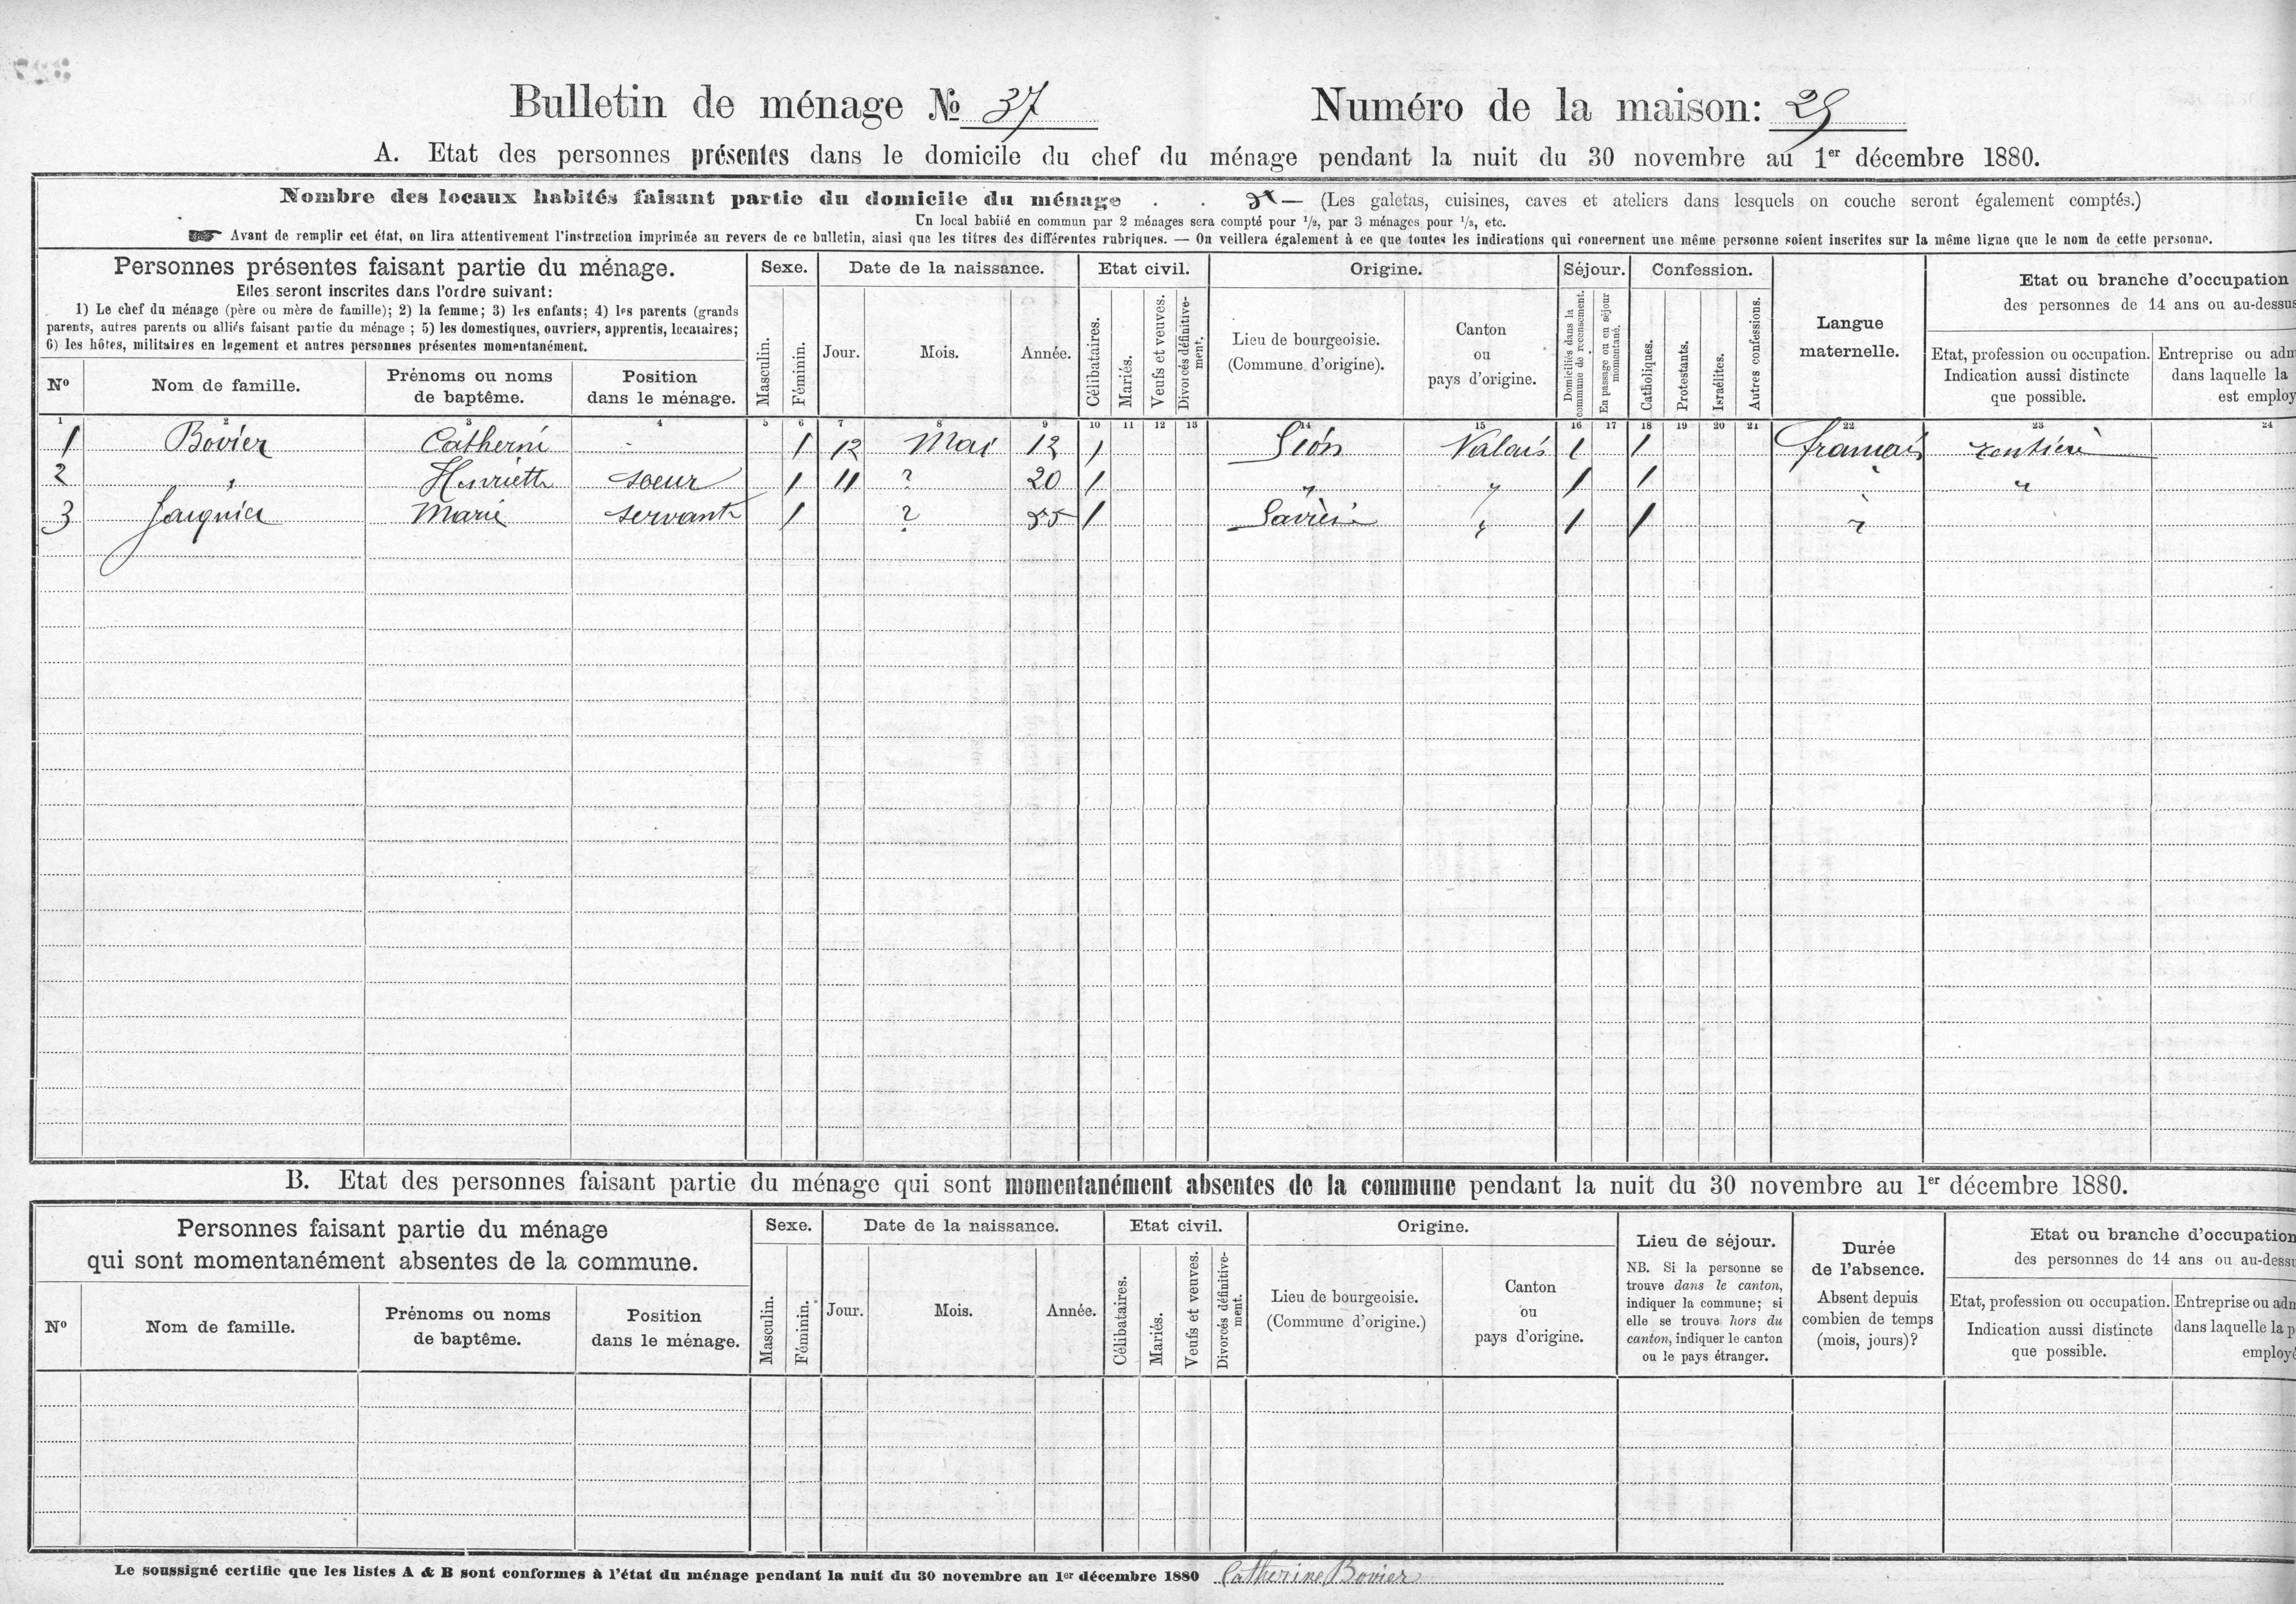 Bulletin de ménage № 37 Numéro de la maison: 29
A. Etat des personnes présentes dans le domicile du chef du ménage pendant la nuit du 30 novembre au 1er décembre 1880.
Nombre des locaux habités faisant partie du domicile du ménage . . (Les galetas, cuisines, caves et ateliers dans lesquels on couche seront également comptés.)
Un local habité en commun par 2 ménages sera compté pour 1/2, par 3 ménages pour 1/3, etc.
☛ Avant de remplir cet état, on lira attentivement l'instruction imprimée au revers de ce bulletin, ainsi que les titres des différentes rubriques. — On veillera également à ce que toutes les indications qui concernent une même personne soient inscrites sur la même ligne que le nom de cette personne.
Personnes présentes faisant partie du ménage.
Elles seront inscrites dans l'ordre suivant:
1) Le chef du ménage (père ou mère de famille); 2) la femme; 3) les enfants; 4) les parents (grands
parents, autres parents ou alliés faisant partie du ménage ; 5) les domestiques, ouvriers, apprentis, locataires;
6) les hôtes, militaires en logement et autres personnes présentes momentanément.
Nº
Nom de famille.
Prénoms ou noms
de baptême.
Position
dans le ménage.
Sexe.
Masculin.
Féminin.
Date de la naissance.
Jour.
Mois.
Année.
Etat civil.
Célibataires.
Mariés.
Veufs et veuves.
Divorcés définitive-
ment.
Origine.
Lieu de bourgeoisie.
(Commune d'origine).
Canton
ou
pays d'origine.
Séjour.
Domiciliés dans la
commune de recensement.
En passage ou en séjour
momentané.
Confession.
Catholiques.
Protestants.
Israélites.
Autres confessions.
Langue
maternelle.
Etat ou branche d'occupation
des personnes de 14 ans ou au-dessus
Etat, profession ou occupation.
Indication aussi distincte
que possible.
Entreprise ou adm
dans laquelle la
est employ
1 2 3 4 5 6 7 8 9 10 11 12 13 14 15 16 17 18 19 20 21 22 23 24
1 Bovier Catherine - 1 12 Mai 12 1 Sion Valais 1 1 français rentière
2 " Henriette soeur 1 11 ? 20 1 " " 1 1 " "
3 Marie servante 1 ? 55 1 Savièse " 1 1 "
B. Etat des personnes faisant partie du ménage qui sont momentanément absentes de la commune pendant la nuit du 30 novembre au 1er décembre 1880.
Personnes faisant partie du ménage
qui sont momentanément absentes de la commune.
Nº
Nom de famille.
Prénoms ou noms
de baptême.
Position
dans le ménage.
Sexe.
Masculin.
Féminin.
Date de la naissance.
Jour.
Mois.
Année.
Etat civil.
Célibataires.
Mariés.
Veufs et veuves.
Divorcés définitive-
ment.
Origine.
Lieu de bourgeoisie.
(Commune d'origine.)
Canton
ou
pays d'origine.
Lieu de séjour.
NB. Si la personne se
trouve dans le canton,
indiquer la commune; si
elle se trouve hors du
canton, indiquer le canton
ou le pays étranger.
Durée
de l'absence.
Absent depuis
combien de temps
(mois, jours)?
Etat ou branche d'occupation
des personnes de 14 ans ou au-dessu
Etat, profession ou occupation.
Indication aussi distincte
que possible.
Entreprise ou adm
dans laquelle la p
employé
Le soussigné certifie que les listes A & B sont conformes à l'état du ménage pendant la nuit du 30 novembre au 1er décembre 1880 Catherine Bovier